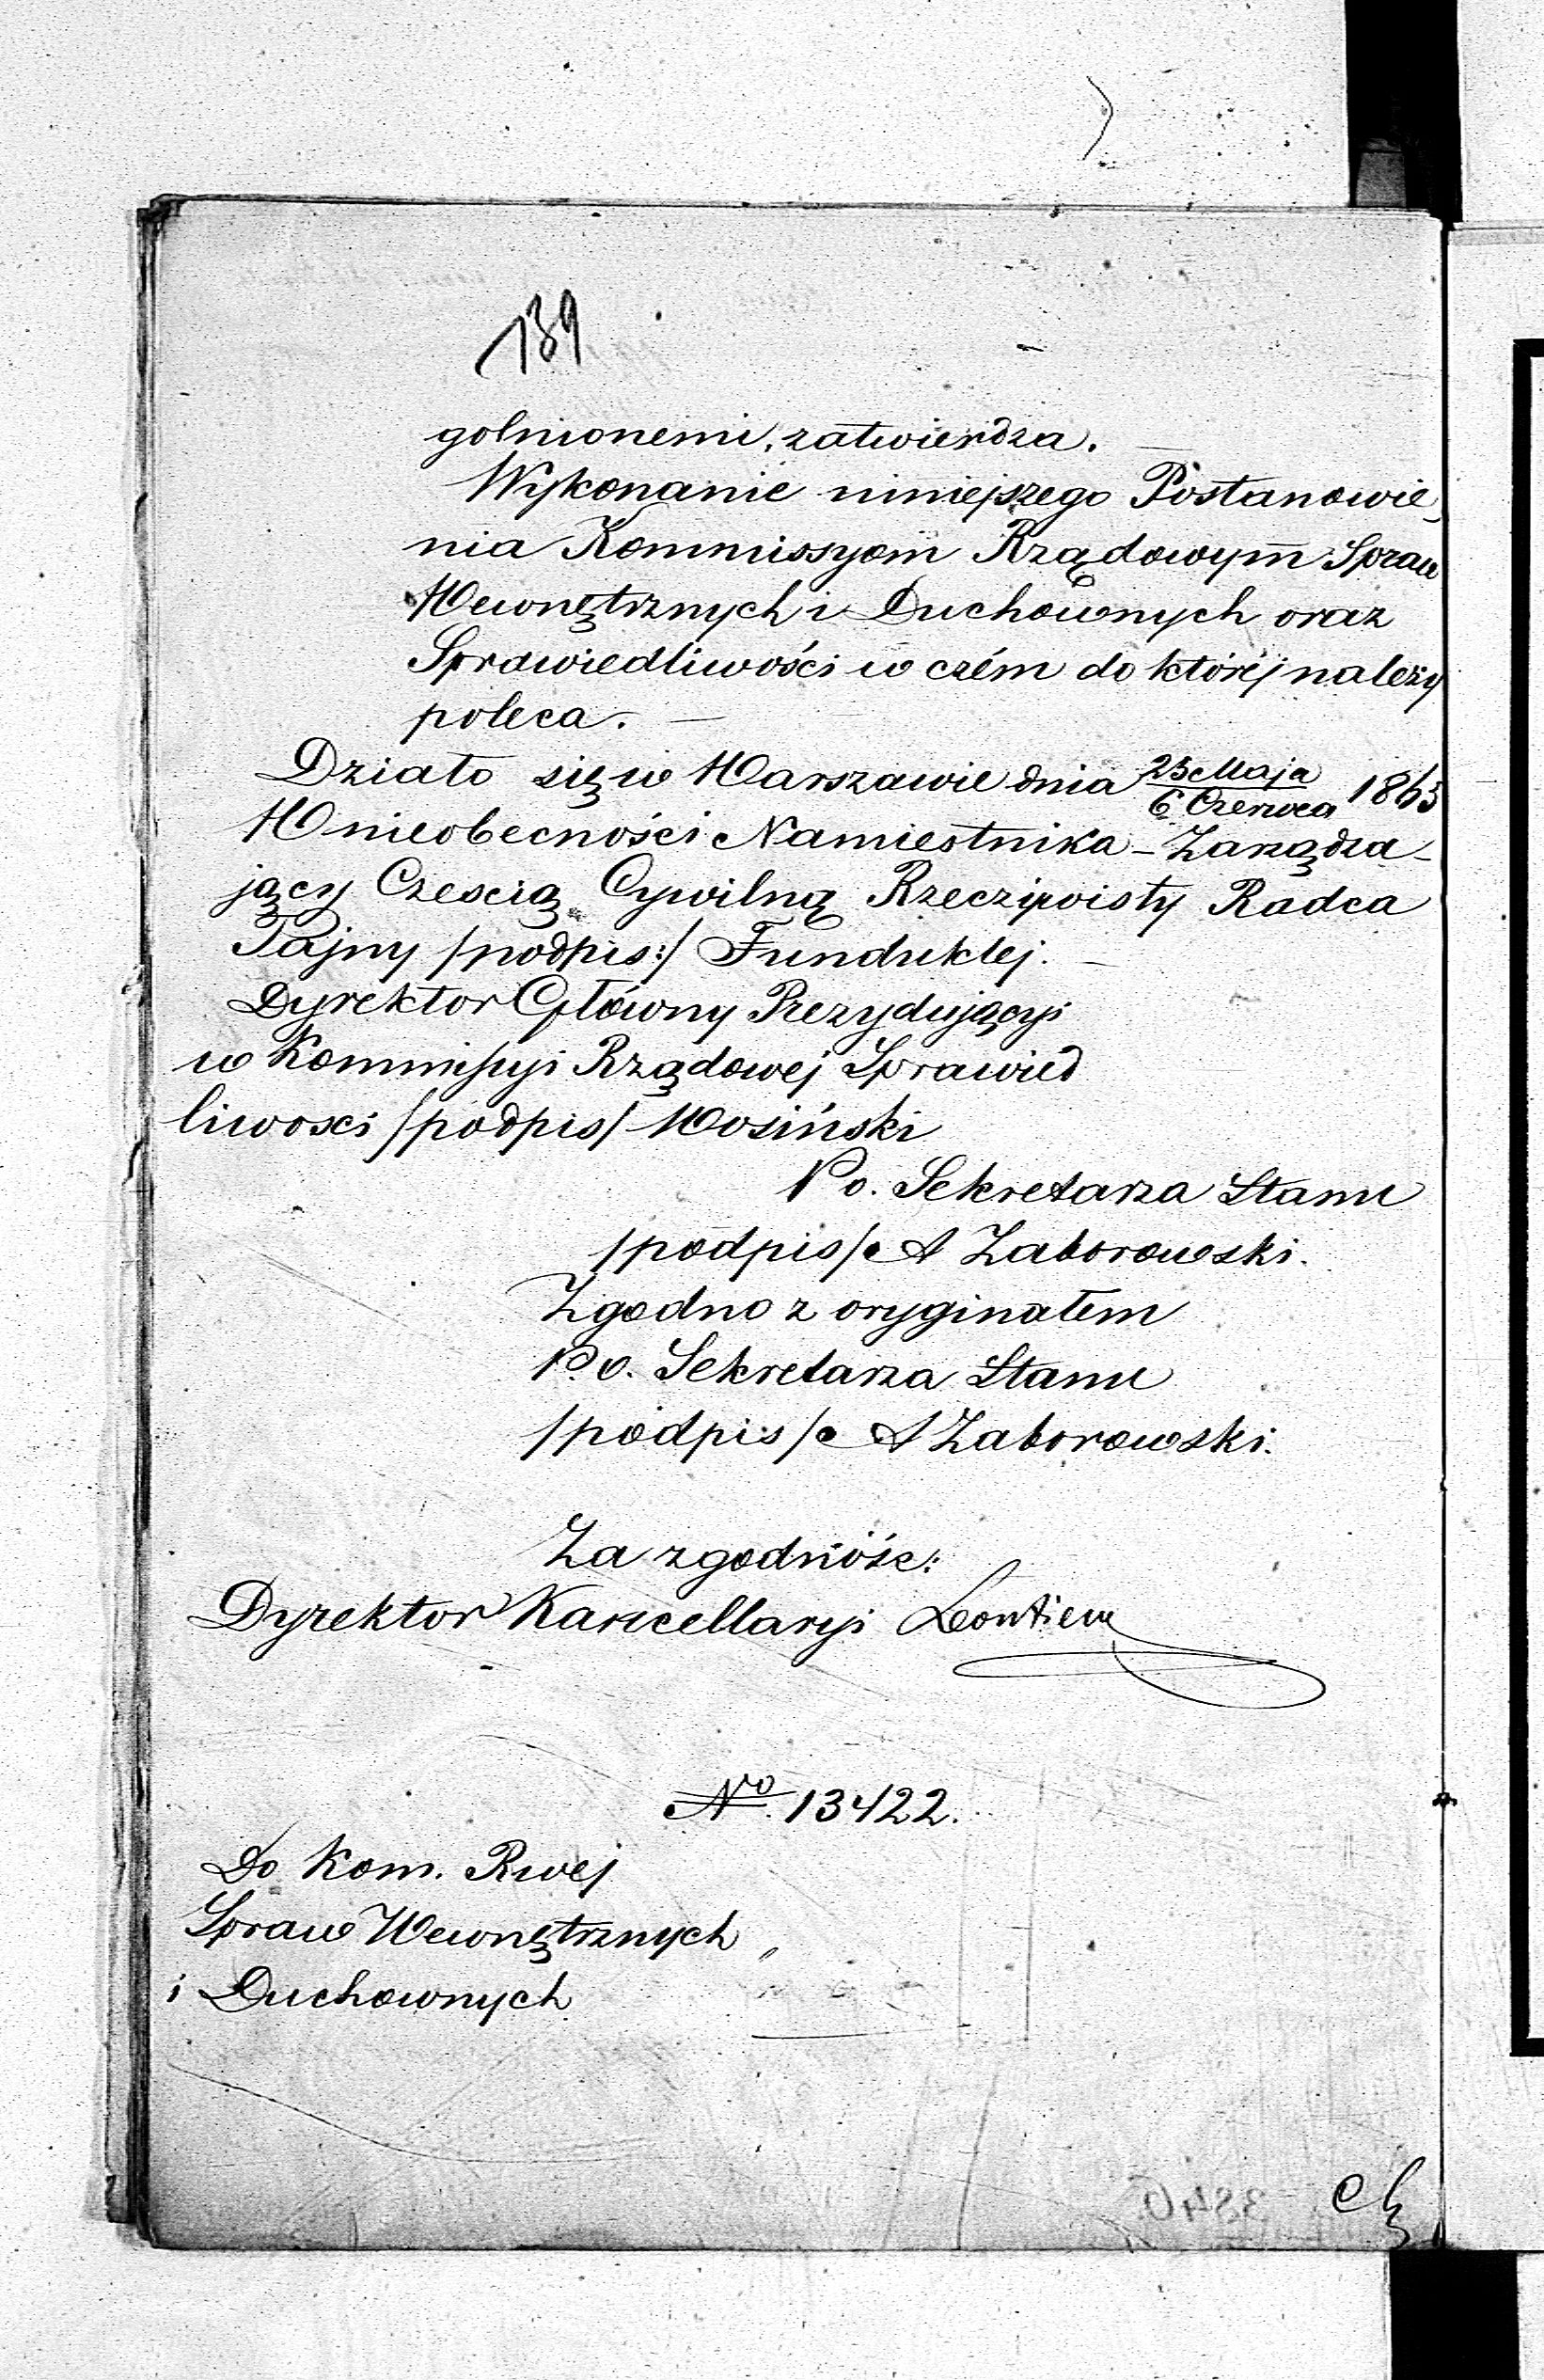 139
golnionemi, zatwierdza.
Wykonanie niniejszego Postanowie-
nia Kommissyom Rządowym Spraw
Wewnętrznych i Duchownych oraz
Sprawiedliwości w czém do któréj należy
poleca. —
Działo się w Warszawie dnia 25 Maja / 6 Czerwca 1865
W nieobecności Namiestnika - Zarządza-
jący Czescią Cywilną Rzeczywisty Radca
Tajny /podpis:/ Funduklej. —
Dyrektor Główny Prezydujący
w Kommissyi Rządowej Sprawied
liwosci /podpis/ Wosiński
Po. Sekretarza Stanu
/podpis/ A Zaborowski.
Zgodno z oryginałem
P.o. Sekretarza Stanu
/podpis/ A Zaborowski.
Za zgodność:
Dyrektor Kancellaryi Leontiew
No. 13422.
Do Kom. Rwej
Spraw Wewnętrznych
i Duchownych